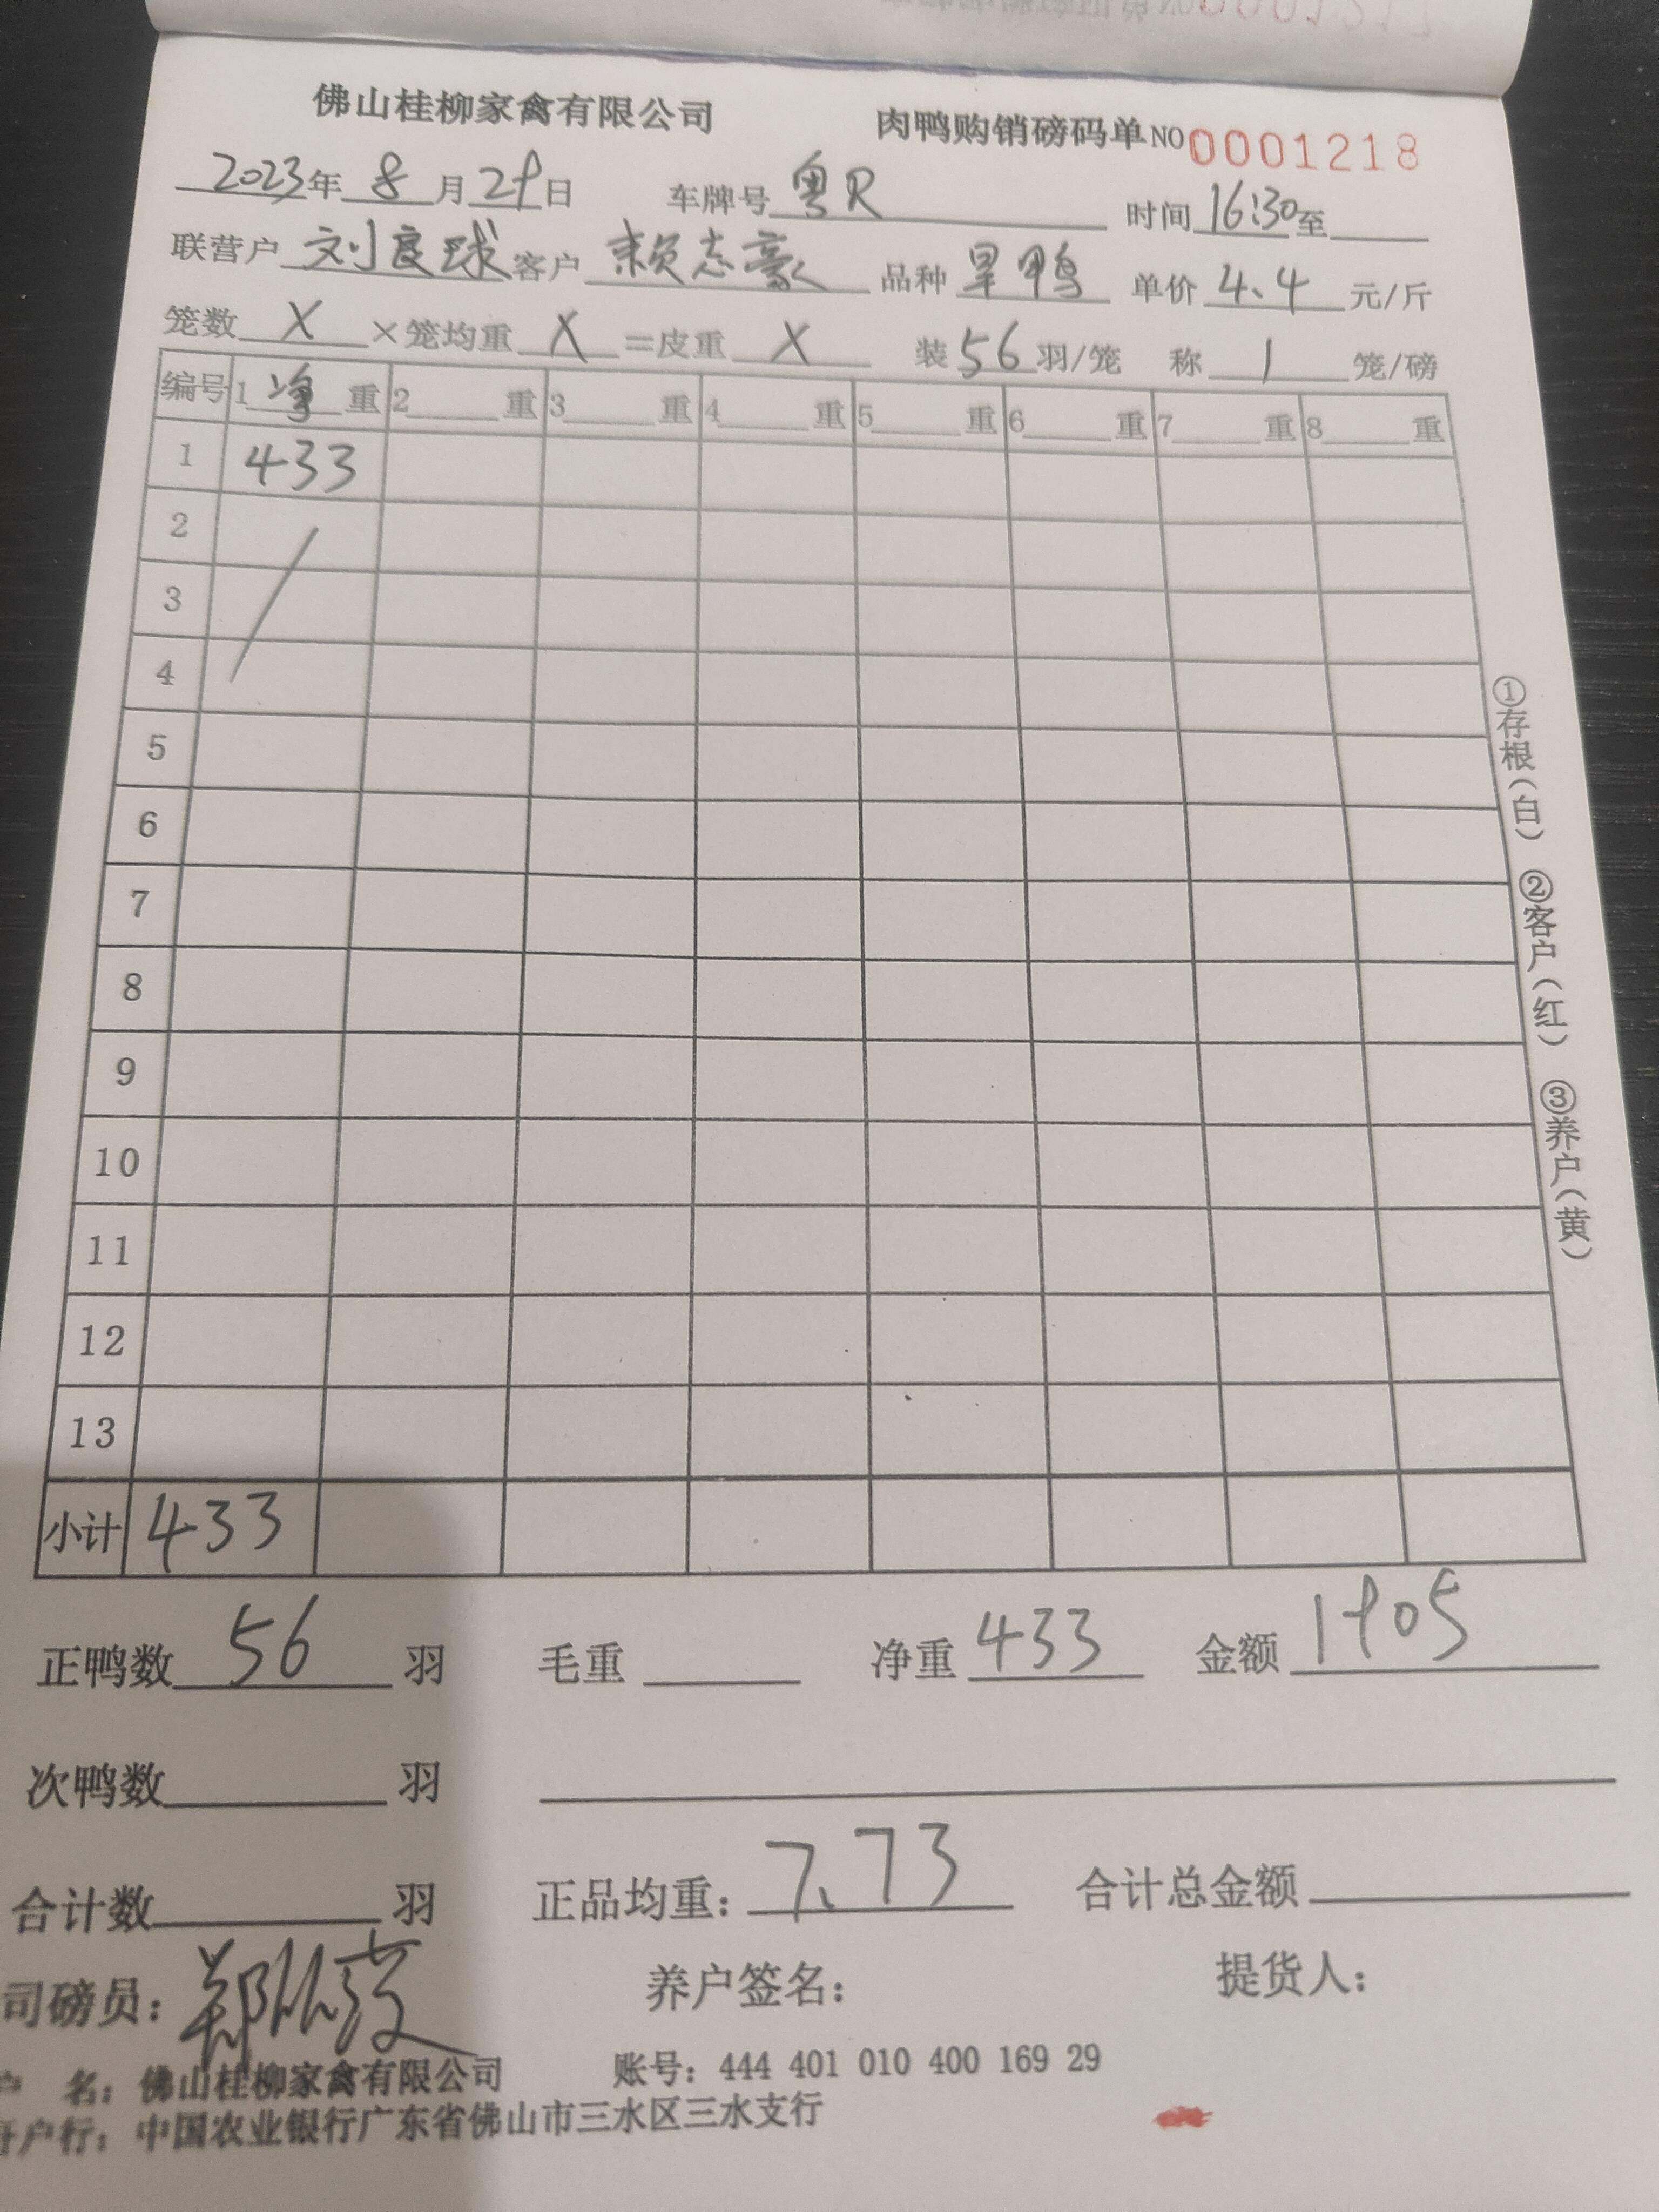 佛山桂柳家禽有限公司 肉鸭购销磅码单 NO 0001218
2023年 8月 29日 车牌号 粤R 时间 16:30 至
联营户 刘良球 客户 赖志豪 品种 旱鸭 单价 4.4 元/斤
笼数 X ×笼均重 X =皮重 X 装 56 羽/笼 称 1 笼/磅
编号 1 净 重 2 重 3 重 4 重 5 重 6 重 7 重 8 重
1 433
2
3
4
5
6
7
8
9
10
11
12
13
小计 433
①存根(白) ②客户(红) ③养户(黄)
正鸭数 56 羽 毛重 净重 433 金额 1905
次鸭数 羽
合计数 羽 正品均重: 7.73 合计总金额
司磅员: 郑 养户签名: 提货人:
户 名: 佛山桂柳家禽有限公司 账号: 444 401 010 400 169 29
开户行: 中国农业银行广东省佛山市三水区三水支行